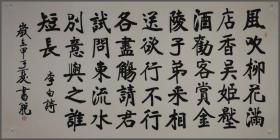 風吹柳花滿
店香吳姬壓
酒勸客嘗金
陵子弟來相
送欲行不行
各盡觴請君
試問東流水
別意與之誰
短長 李白詩
歲 甲 夏書